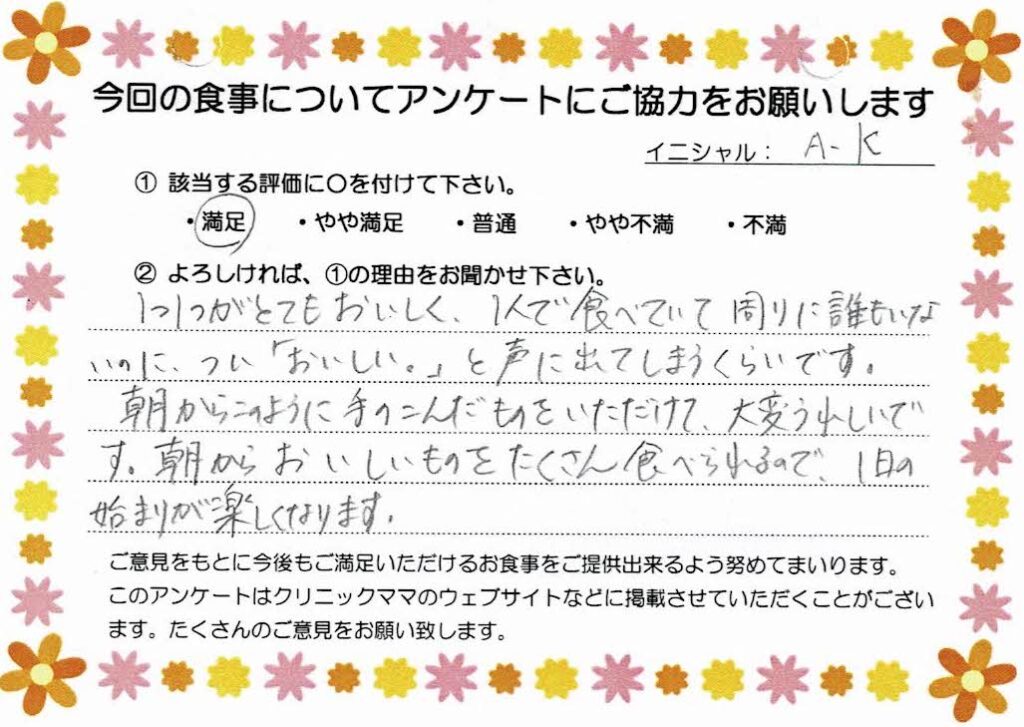 今回の食事についてアンケートにご協力をお願いします
イニシャル： A-K
① 該当する評価に〇を付けて下さい。
・満足 ・やや満足 ・普通 ・やや不満 ・不満
② よろしければ、①の理由をお聞かせ下さい。
1つ1つがとてもおいしく、1人で食べていて周りに誰もいな
いのに、つい「おいしい。」と声に出てしまうくらいです。
朝からこのように手のこんだものをいただけて、大変うれしいで
す。朝からおいしいものをたくさん食べられるので、1日の
始まりが楽しくなります。
ご意見をもとに今後もご満足いただけるお食事をご提供出来るよう努めてまいります。
このアンケートはクリニックママのウェブサイトなどに掲載させていただくことがござい
ます。たくさんのご意見をお願い致します。